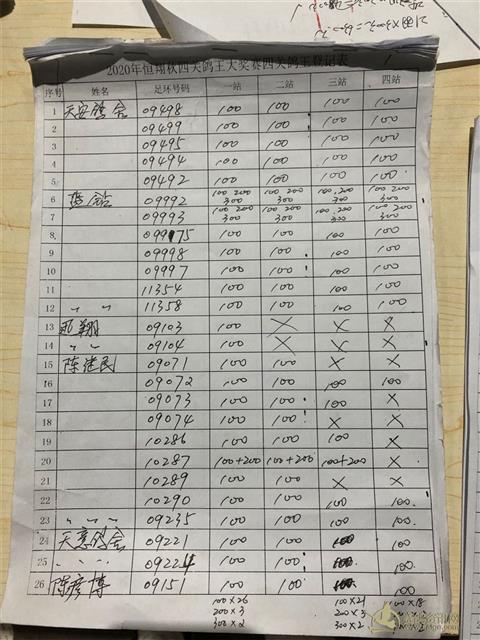 2020年恒翔秋四关鸽王大奖赛四关鸽王登记表
序号 姓名 足环号码 一站 二站 三站 四站
1 天安鸽舍 09498 100 100 100 100
2 09499 100 100 100 100
3 09495 100 100 100 100
4 09494 100 100 100 100
5 09492 100 100 100 100
6 09992 100 200 300 100 200 300 100 200 300 100 200 300
7 09993 100 200 300 100 200 300 100 200 300 100 200 300
8 09975 100 100 100 100
9 09998 100 100 100 100
10 09997 100 100 100 100
11 11354 100 100 100 100
12 〃 〃 11358 100 100 100 100
13 翔 09103 100 X X X
14 〃 〃 09104 100 X X X
15 陈建民 09071 100 100 X X
16 09072 100 100 100 100
17 09073 100 100 100 X
18 09074 100 100 X X
19 10286 100 100 100 X
20 10287 100+200 100+200 100+200 X
21 10289 100 100 X X
22 10290 100 100 100 100
23 〃 〃 〃 09235 100 100 100 100
24 天意鸽舍 09221 100 100 100 100
25 〃 〃 〃 09224 100 100 100 100
26 陈彦博 09151 100 100 100 100
100×26 100×21 100×18
200×3 200×3
300×2 300×2